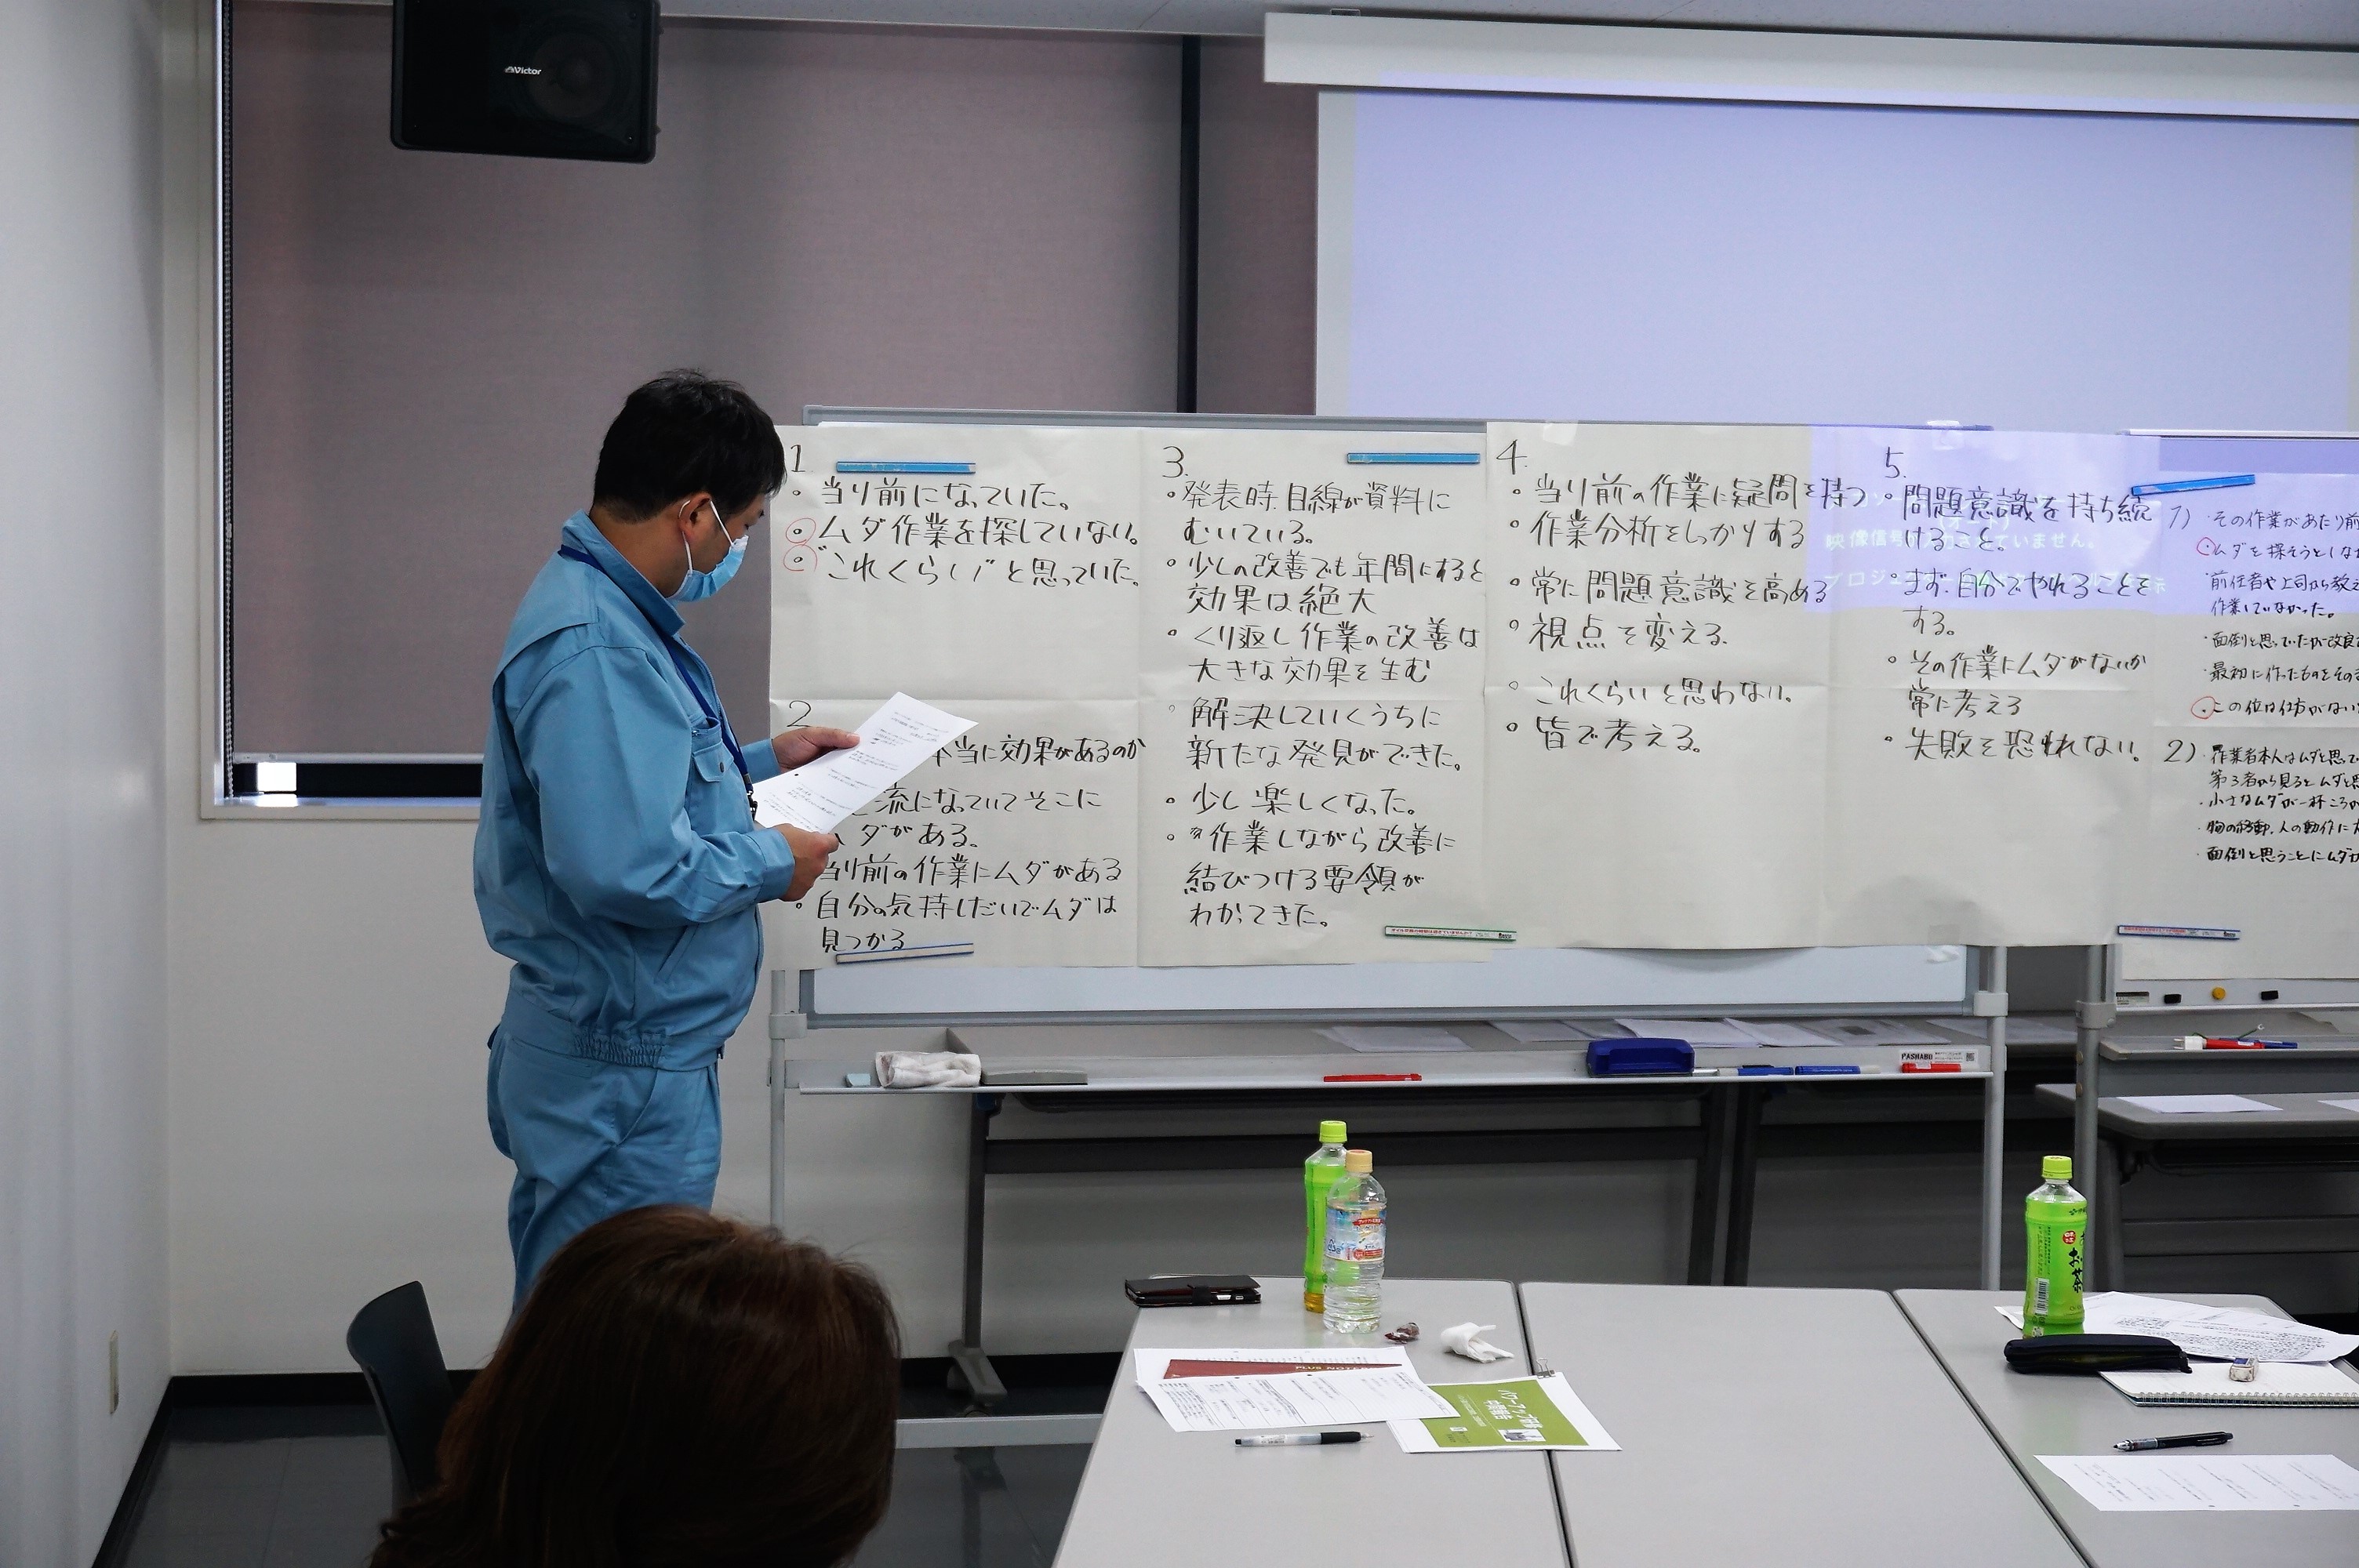 Victor
1
・当り前になっていた。
・ムダ作業を探していない。
・"これくらい"と思っていた。
2
本当に効果があるのか
流になっていてそこに
ムダがある。
当り前の作業にムダがある
・自分の気持しだいでムダは
見つかる
3.
・発表時.目線が資料に
むいている。
・少しの改善でも年間にすると
効果は絶大
・くり返し作業の改善は
大きな効果を生む
・解決していくうちに
新たな発見ができた。
・少し楽しくなった。
・作業しながら改善に
結びつける要領が
わかってきた。
4.
・当り前の作業に疑問を持つ
・作業分析をしっかりする
・常に問題意識を高める
・視点を変える.
・これくらいと思わない。
・皆で考える。
5.
・問題意識を持ち続
けること。
・まず.自分でやれることを
する。
・その作業にムダがないか
常に考える
・失敗を恐れない。
映像信号が入力されていません。
1)
・その作業があたり前
・ムダを探そうとしな
・前任者や上司から教え
作業していなかった。
・面倒と思っていたが改良
・最初に作ったものをその
・この位は仕方がない
2)
・作業者本人はムダと思って
第3者から見るとムダと思
・小さなムダが一杯ころが
・物の移動.人の動作に
・面倒と思うことにムダが
PASHABO
PLUS NOTE
お茶